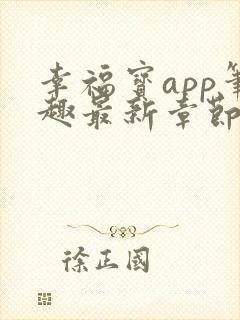 幸福寳app筆
趣最新章節
徐正國